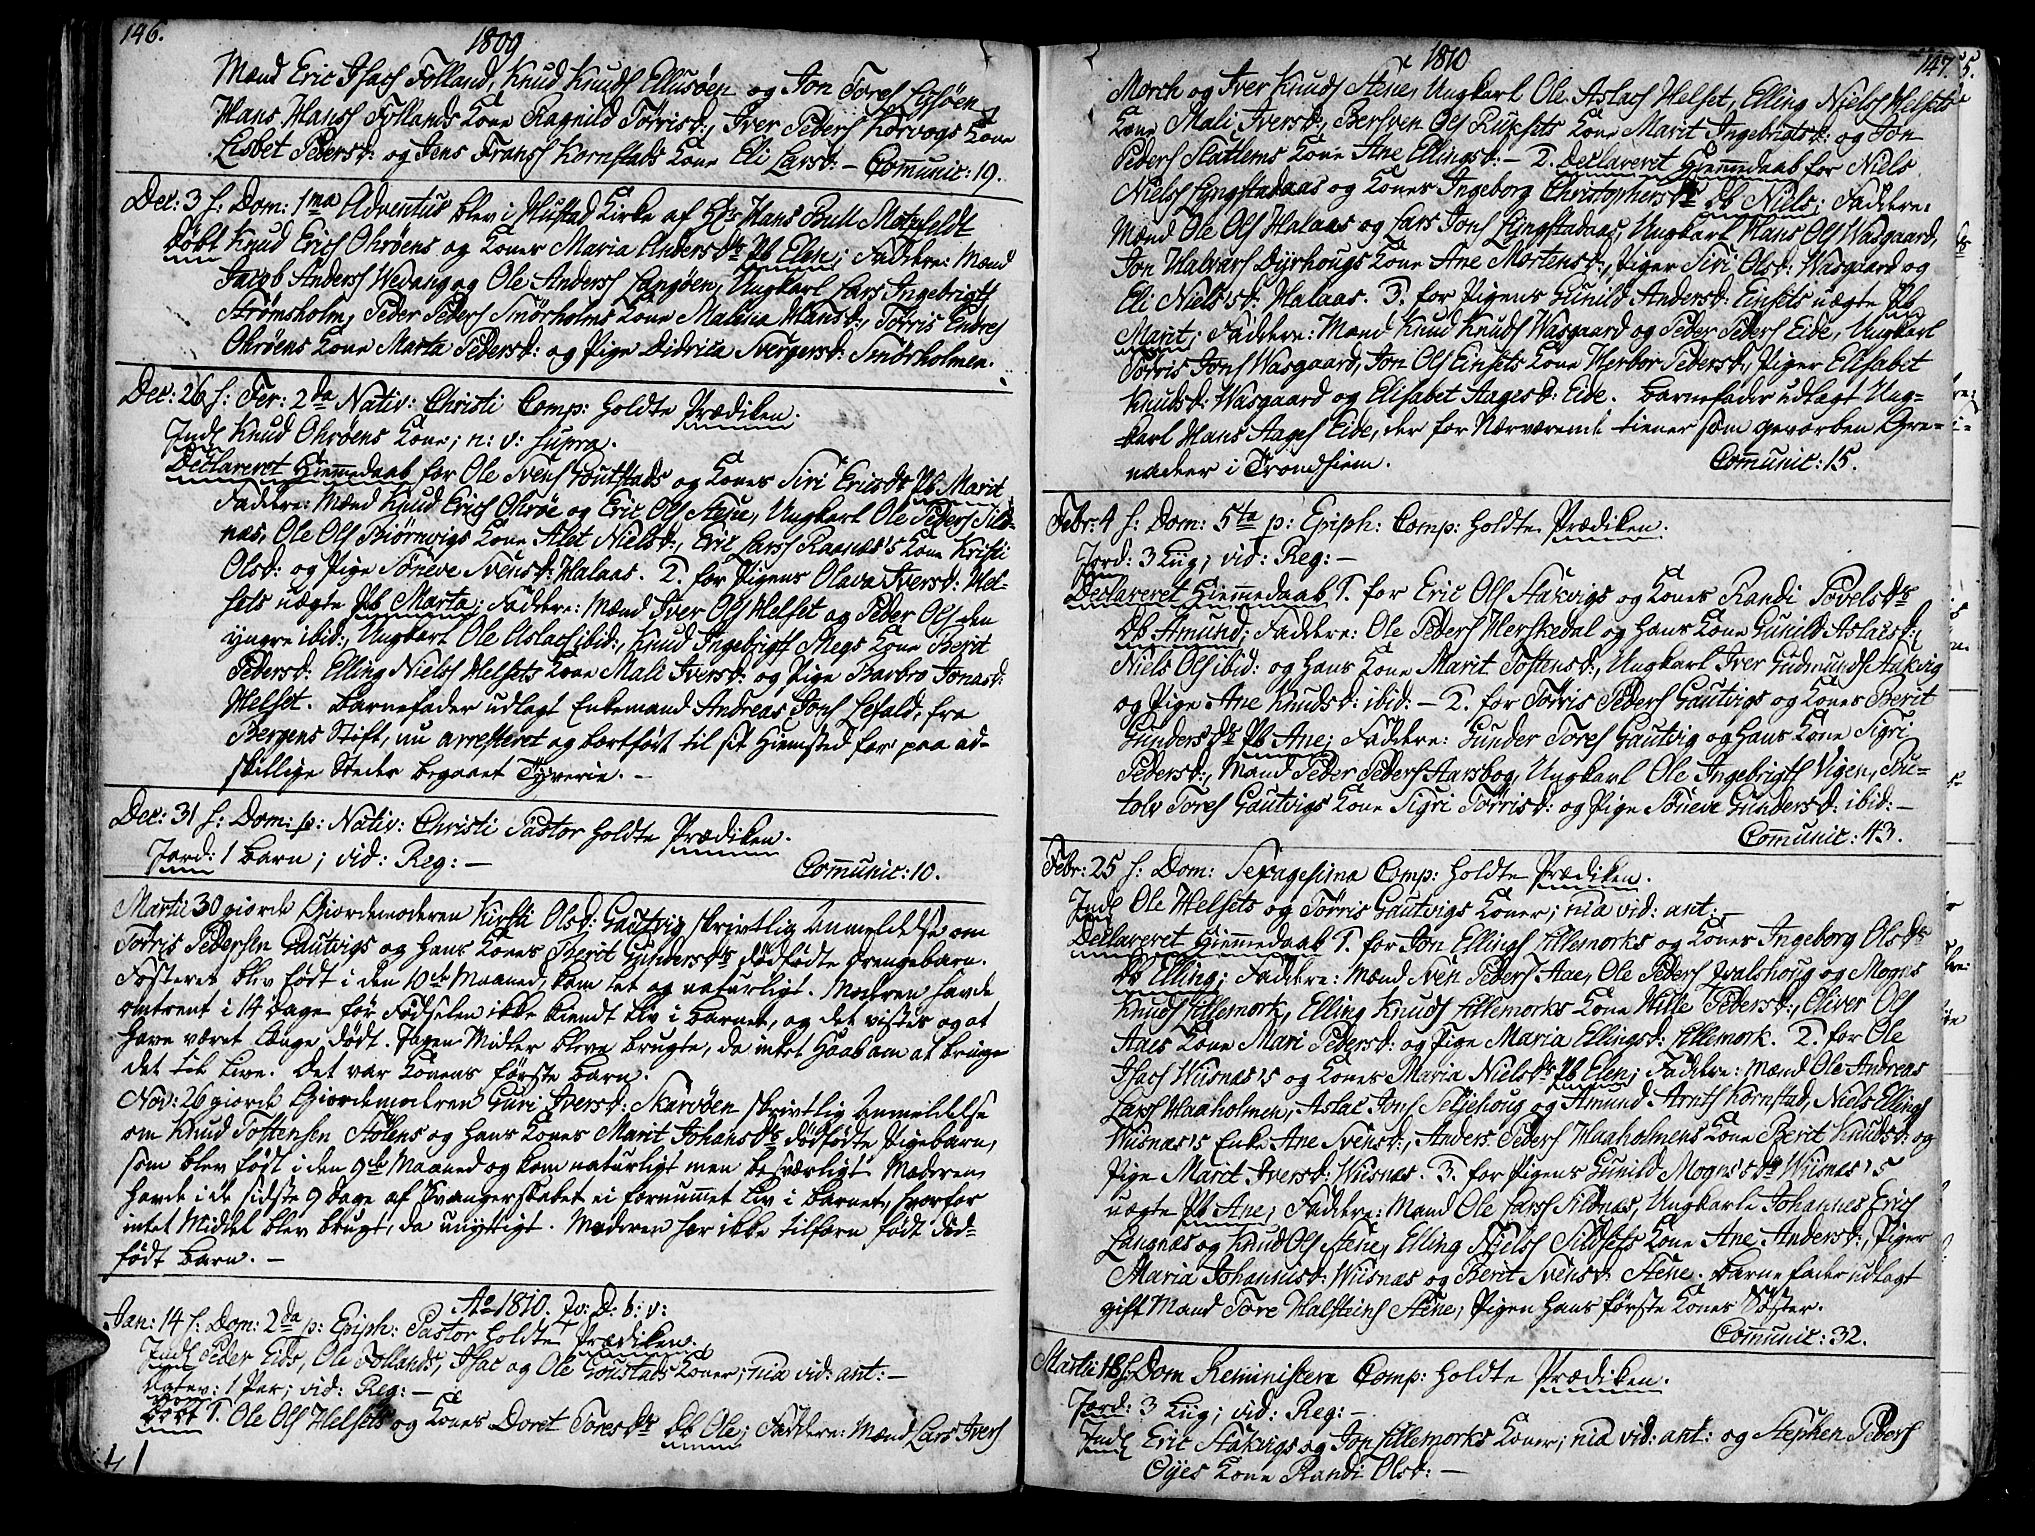 146.
1809
Mænd Eric Isachs Folland, Knud Knuds Ellusöen og Jon Tores Ersöen
Hans Hans Follands Kone Ragnild Törrisd:, Iver Peders Korvogs Kone
Lisbet Pedersd: og Jens Frans Kornstads Kone Eli Larsd: – Com̄unic: 19.
Dec: 3 s: Dom: 1ma Adventus blev i Hustad Kirke af Hr Hans Bull Motzfeldt
döbt Knud Erics Ohröens og Kones Maria Andersdr Pb Elen; Faddere: Mænd
Jacob Anders Wedang og Ole Anders Langöen, Ungkarl Lars Ingebrigts
Strömsholm, Peder Peders Smörholms Kone Malena Hansd:, Törris Endres
Ohröens Kone Marta Pedersd: og Pige Didrica Svergersd: Smörholmen.
Dec: 26 s: Fer: 2da Nativ: Christi Comp: holdte Prædiken.
Indl Knud Ohröens Kone; n: v: supra.
Declareret Hiem̄edaab for Ole Svens Goustads og Kones Siri Ericsdr Pb Marit
Faddere: Mænd Knud Erics Ohröe og Eric Ols Stene, Ungkarl Ole Peders Sild-
nas, Ole Ols Biörnvigs Kone Alet Nielsd:, Eric Lars Raanæs's Kone Kristi
Olsd: og Pige Söneve Svensd: Halaas. 2. for Pigens Olava Iversd: Hel-
sets uægte Pb Marta; Faddere: Mænd Iver Ols Helset og Peder Ols den
yngre ibid:, Ungkarl Ole Aslachs ibid:, Knud Ingebrigts Megs Kone Berit
Pedersd: Elling Niels Helsets Kone Mali Iversd: og Pige Barbro Jonasd:
Helset. Barnefader udlagt Enkemand Andreas Jons Lefald, fra
Bergens Stift, nu arresteret og bortfört til sit Hiemsted for paa ad-
skillige Steder begaaet Tyverie. –
Dec: 31 s: Dom: p: Nativ: Christi Pastor holdte Prædiken.
Jord: 1 Barn; vid: Reg: –
Com̄unic: 10.
Martii 30 giorde Giordemoderen Kirsti Olsd: Gautvig skrivtlig Anmeldelse om
Törris Pedersen Gautvigs og hans Kones Berit Gundersdrs dödfödte Drengebarn.
Fosteret blev födt i den 10de Maaned, kom let og naturligt. Moderen havde
omtrent i 14 Dage för Födselen ikke kiendt Liv i Barnet, og det vistes og at
have været længe dödt. Ingen Midler bleve brugte, da intet Haab om at bringe
det til Live. Det var Konens förste Barn.
Nov: 26 giorde Giordemoderen Guri Iversd: Skarvöen skrivtlig Anmeldelse
om Knud Tostensen Stölens og hans Kones Marit Johansdrs dödfödte Pigebarn,
som blev födt i den 9de Maaned og kom naturligt men besværligt. Moderen
havde i de sidste 9 Dage af Svangerskabet ei fornum̄et Liv i Barnet, hvorfor
intet Middel blev brugt, da unyttigt. Moderen har ikke tilforn födt död-
födt Barn. –
Ao 1810. Iv: D: b: v:
Jan: 14 s: Dom: 2da p: Epiph: Pastor holdte Prædiken.
Indl Peder Eids, Ole Follands, Isac og Ole Goustads Koner; nia vid: ant: –
Copulev: 1 Par; vid: Reg: –
Döbt 1. Ole Ols Helsets og Kones Doret Toresdr Db Ole; Faddere: Mænd Lars Ivers
1810
147.
5.
Morch og Iver Knuds Stene, Ungkarl Ole Aslachs Helset, Elling Niels Helsets
Kone Mali Iversd:, Bersven Ols Rüksets Kone Marit Ingebrigtsd: og Jon
Peders Slatlems Kone Ane Ellingsd: – 2. Declareret Hiem̄edaab for Niels
Niels Lyngstadaas og Kones Ingeborg Christophersdr Db Niels; Faddere:
Mænd Ole Ols Halaas og Lars Jons Lyngstadaas, Ungkarl Hans Ols Wasgaard,
Jon Halvars Dyrhougs Kone Ane Mortensd:, Piger Siri Olsd: Wasgaard og
Eli Nielsd: Halaas. 3. for Pigens Gunild Andersd: Einsets uægte Pb
Marit; Faddere: Mænd Knud Knuds Wasgaard og Peder Peders Eide, Ungkarl
Törris Jons Wasgaard, Jon Ols Einsets Kone Herbor Pedersd:, Piger Elisabet
Knudsd: Wasgaard og Elisabet Aagesd: Eide. Barnefader udlagt Ung-
karl Hans Aages Eide, der for Nærværende tiener som gevorben Gre-
nadeer i Trondhiem.
Com̄unic: 15.
Febr: 4 s: Dom: 5ta p: Epiph: Comp: holdte Prædiken.
Jord: 3 Liig; vid: Reg: –
Declareret Hiem̄edaab 1. for Eric Ols Stakvigs og Kones Randi Povelsdr
Db Amund; Faddere: Ole Peders Herskedal og hans Kone Gunild Aslacsd:,
Niels Ols ibid: og hans Kone Marit Tostensd:, Ungkarl Iver Gudmunds Stakvig
og Pige Ane Knudsd: ibid: – 2. for Törris Peders Gautvigs og Kones Berit
Gundersdr Pb Ane; Faddere: Gunder Tores Gautvig og hans Kone Sigri
Pedersd:, Mand Peder Peders Aarsbog, Ungkarl Ole Ingebrigts Vigen, Bu-
tolv Tores Gautvigs Kone Sigri Törrisd: og Pige Söneve Gundersd: ibid: –
Com̄unic: 43.
Febr: 25 s: Dom: Sexagesima Comp: holdte Prædiken.
Indl Ole Helsets og Törris Gautvigs Koner; nia vid: ant: –
Declareret Hiem̄edaab 1. for Jon Ellings Lillemorks og Kones Ingeborg Olsdr
Db Elling; Faddere: Mænd Sven Peders Aae, Ole Peders Hvalshoug og Mogns
Knuds Lillemork, Elling Knuds Lillemorks Kone Mille Pedersd:, Oliver Ols
Aaes Kone Mari Pedersd: og Pige Maria Ellingsd: Lillemork. 2. for Ole
Isachs Wiisnæs's og Kones Maria Nielsdr Pb Elen; Faddere: Mænd Ole Andreas
Lars Haaholmen, Aslac Jons Setsehoug og Amund Arnts Kornstad, Niels Ellings
Wiisnæs's Enke Ane Svensd:, Anders Peders Haaholmens Kone Berit Knudsd: og
Pige Marit Iversd: Wiisnæs. 3. for Pigens Gunild Mogns'sdr Wiisnæs's
uægte Pb Ane; Faddere: Mænd Ole Lars Sildnæs, Ungkarle Johannes Erics
Langnæs og Knud Ols Stene, Elling Niels Sildsets Kone Ane Andersd:, Piger
Maria Johannisd: Wiisnæs og Berit Svensd: Stene. Barnefader udlagt
gift Mand Tore Halsteins Stene, Pigen hans förste Kones Söster.
Com̄unic: 32.
Martii 18 s: Dom Reminiscere Comp: holdte Prædiken.
Jord: 3 Liig; vid: Reg: –
Indl Eric Stakvigs og Jon Lillemorks Koner; nia vid: ant: og Stephen Peders
Öyes Kone Randi Olsd: –